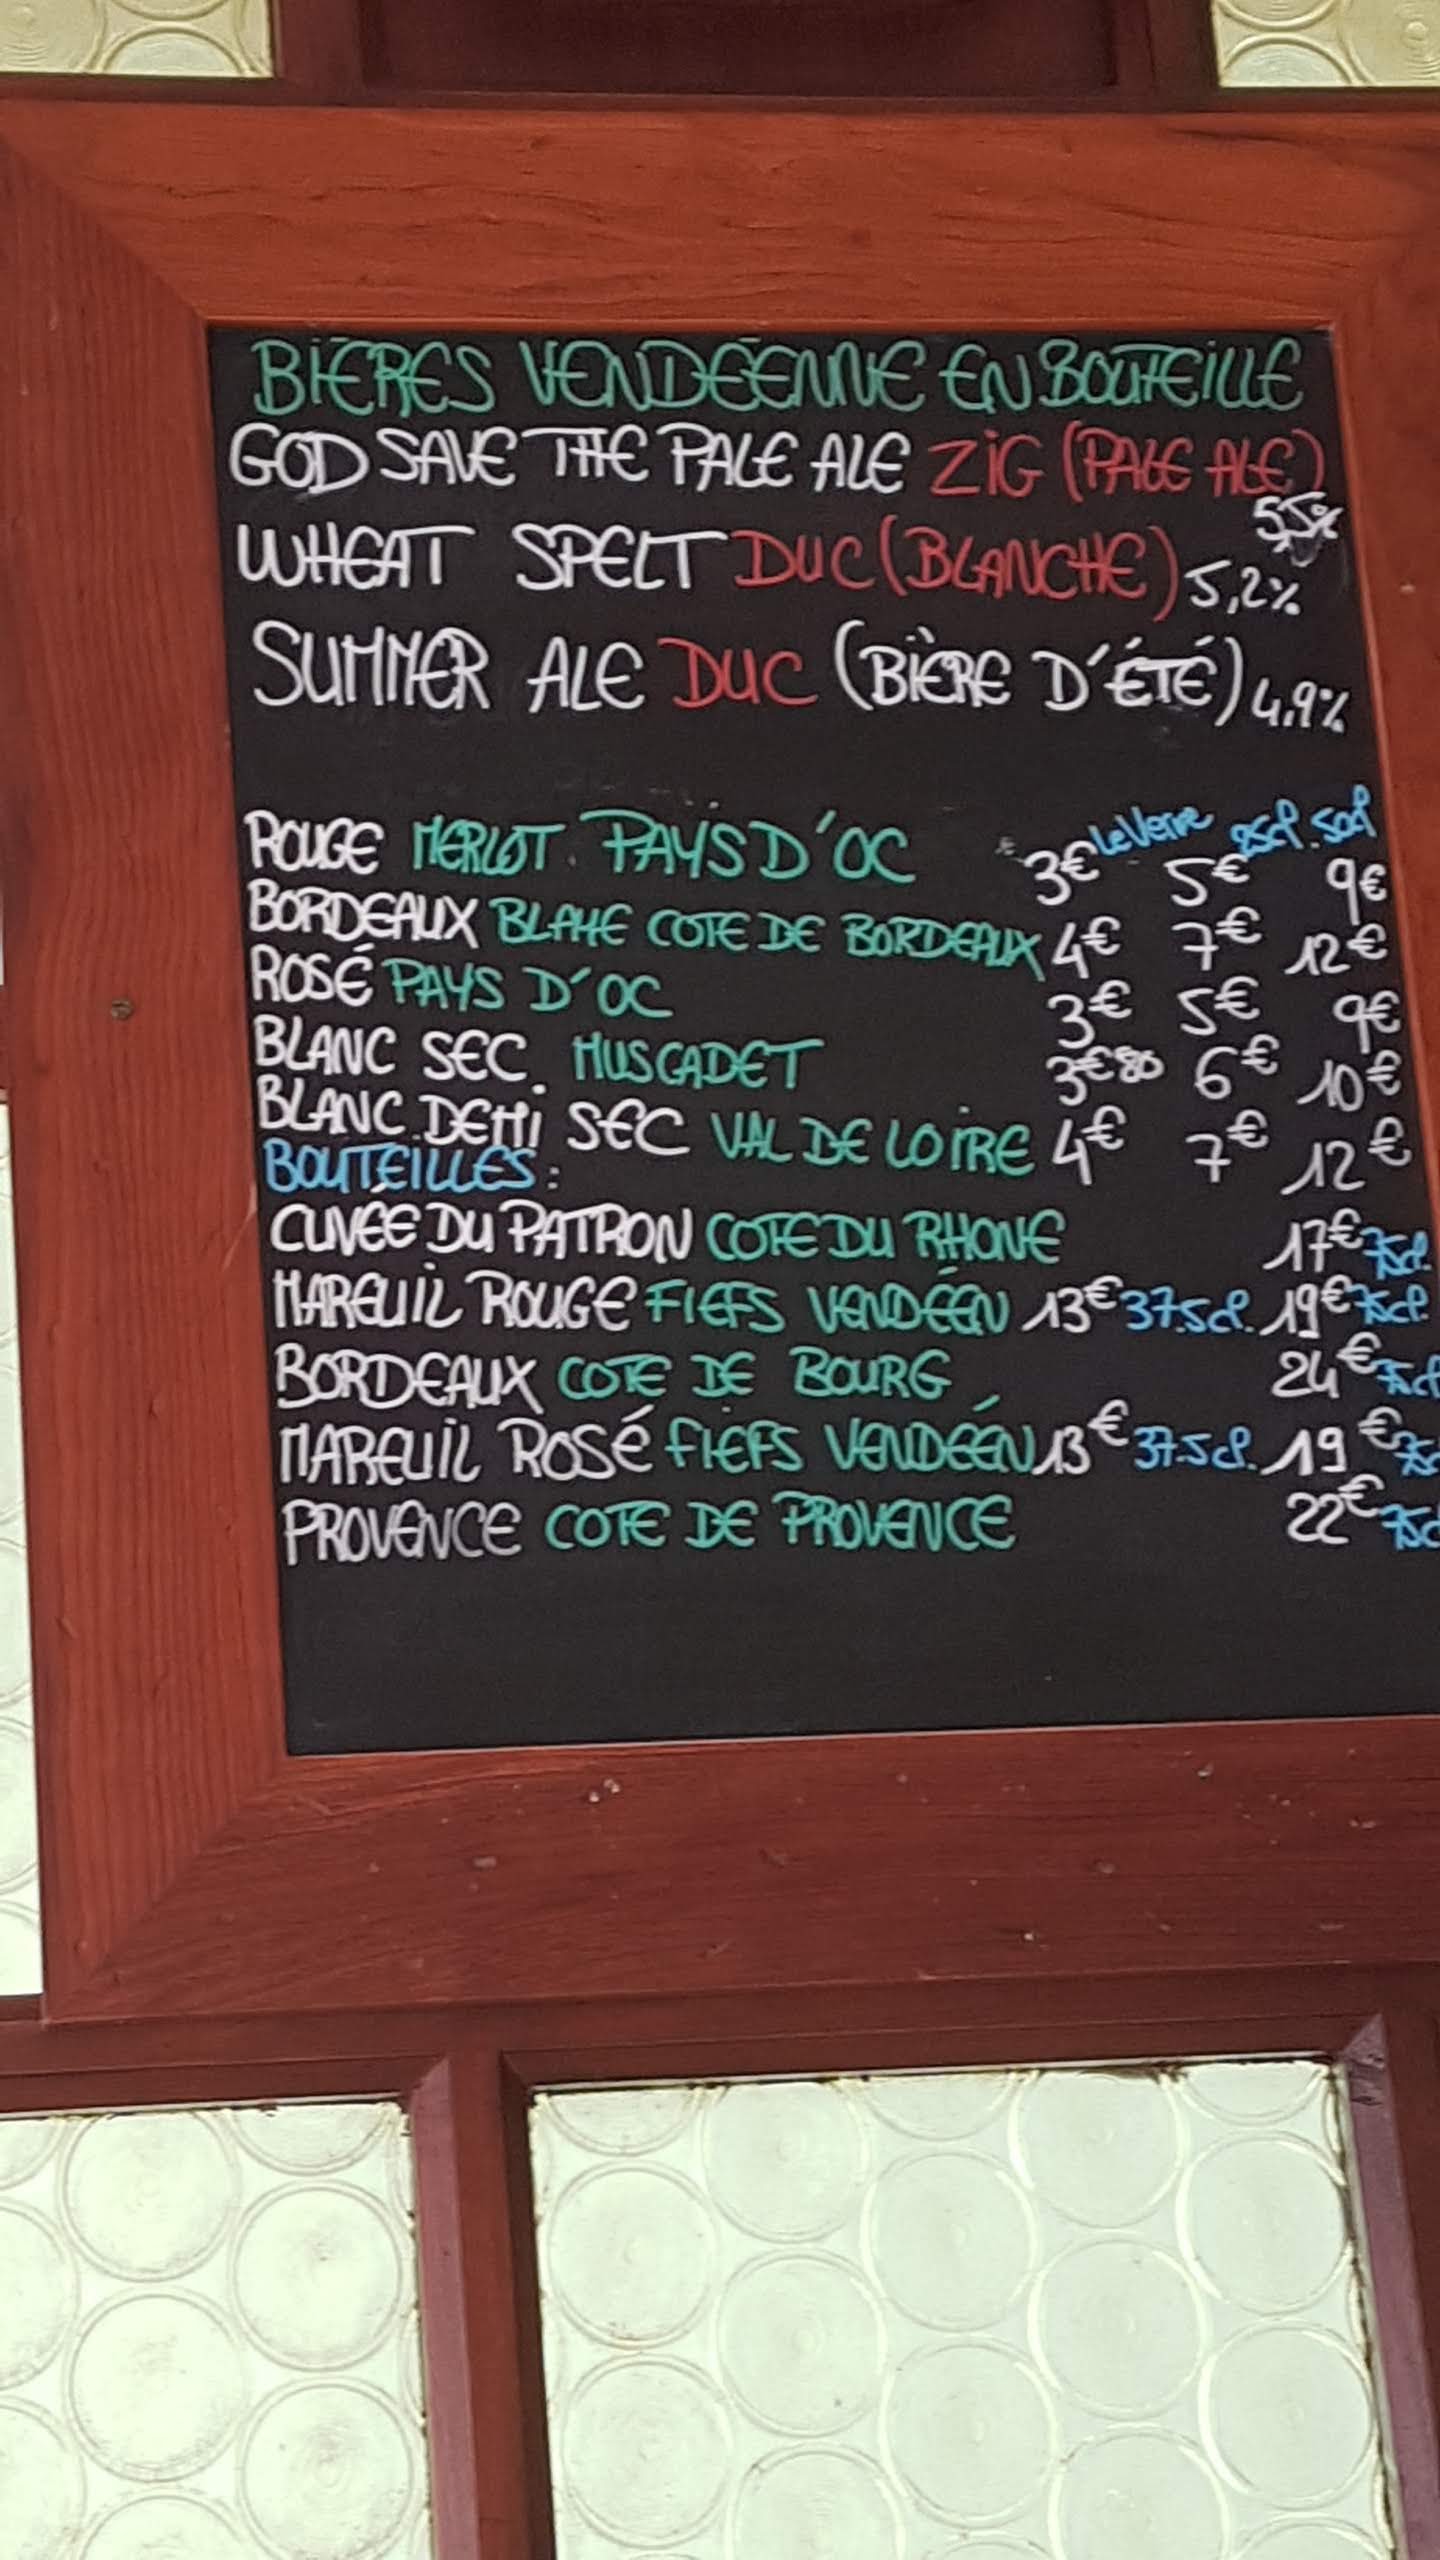 BIÈRES VENDÉENNE EN BOUTEILLE
GOD SAVE THE PALE ALE ZIG (PALE ALE)
5,5%
WHEAT SPELT DUC (BLANCHE) 5,2%
SUMMER ALE DUC (BIÈRE D'ÉTÉ) 4.9%
Le Verre 25cl. 50cl
ROUGE MERLOT PAYS D'OC 3€ 5€ 9€
BORDEAUX BLAYE COTE DE BORDEAUX 4€ 7€ 12€
ROSÉ PAYS D'OC 3€ 5€ 9€
BLANC SEC MUSCADET 3€80 6€ 10€
BLANC DEMI SEC VAL DE LOIRE 4€ 7€ 12€
BOUTEILLES:
CUVÉE DU PATRON COTE DU RHONE 17€ 75cl.
MAREUIL ROUGE FIEFS VENDÉEN 13€ 37.5cl. 19€ 75cl.
BORDEAUX COTE DE BOURG 24€ 75cl
MAREUIL ROSÉ FIEFS VENDÉEN 13€ 37.5cl. 19€ 75c
PROVENCE COTE DE PROVENCE 22€ 75c